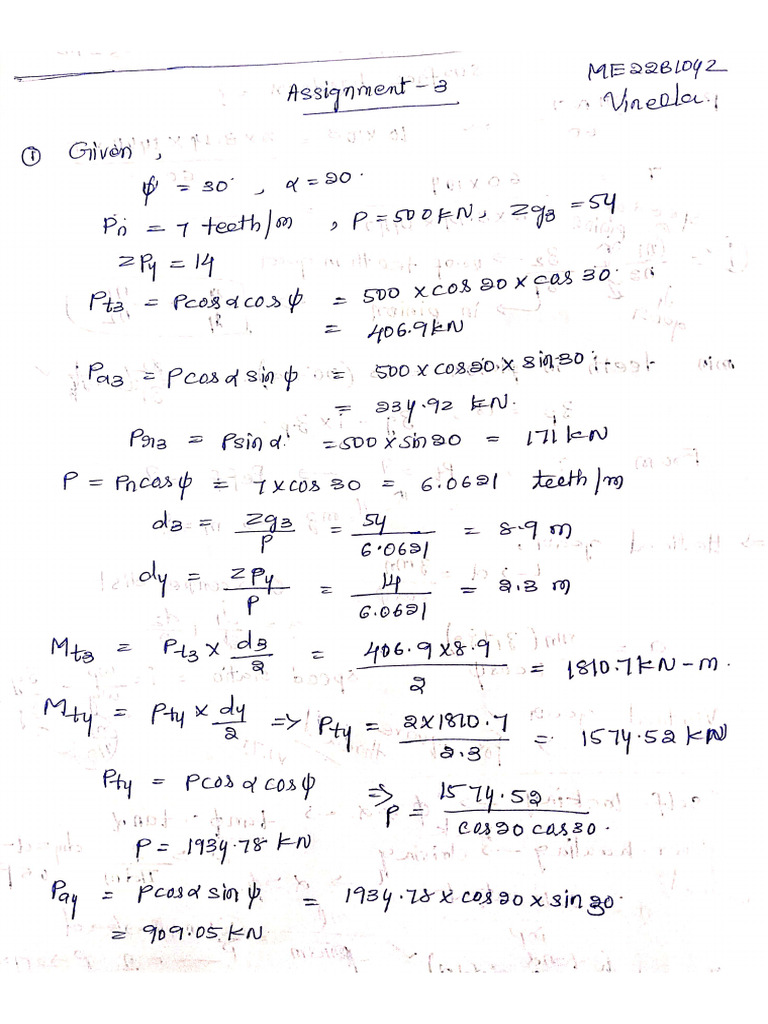 ME22B1042
Assignment-3
Vineela.
① Given,
ψ = 30°, α = 20°
Pn = 7 teeth/m, P = 500KN, Zg3 = 54
ZP4 = 14
Pt3 = Pcosαcosψ = 500 × cos 20 × cos 30°
= 406.9KN
Pa3 = Pcosαsinψ = 500 × cos20 × sin30
= 234.92 KN.
Pr3 = Psinα = 500 × sin20 = 171KN
P = Pncosψ = 7 × cos 30 = 6.0621 teeth/m
d3 = Zg3/P = 54/6.0621 = 8.9 m
d4 = ZP4/P = 14/6.0621 = 2.3 m
Mt3 = Pt3 × d3/2 = 406.9×8.9/2 = 1810.7KN-m.
Mt4 = Pt4 × d4/2 => Pt4 = 2×1810.7/2.3 = 1574.52 KN
Pt4 = Pcosαcosψ => P = 1574.52/cos20 cos30.
P = 1934.78 KN
Pa4 = Pcosαsinψ = 1934.78 × cos20 × sin30.
= 909.05 KN.